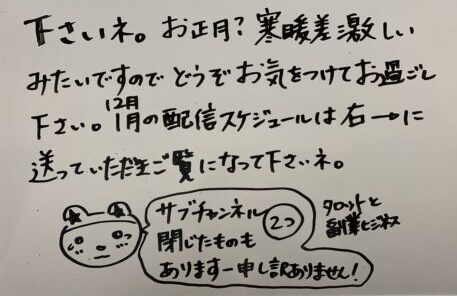 下さいネ。お正月?寒暖差激しい
みたいですのでどうぞお気をつけてお過ごし
12月
下さい。1月の配信スケジュールは右→に
送っていただきご覧になって下さいネ。
サブチャンネル 2つ
閉じたものも
あります―申し訳ありません!
タロットと
副業ビジネス